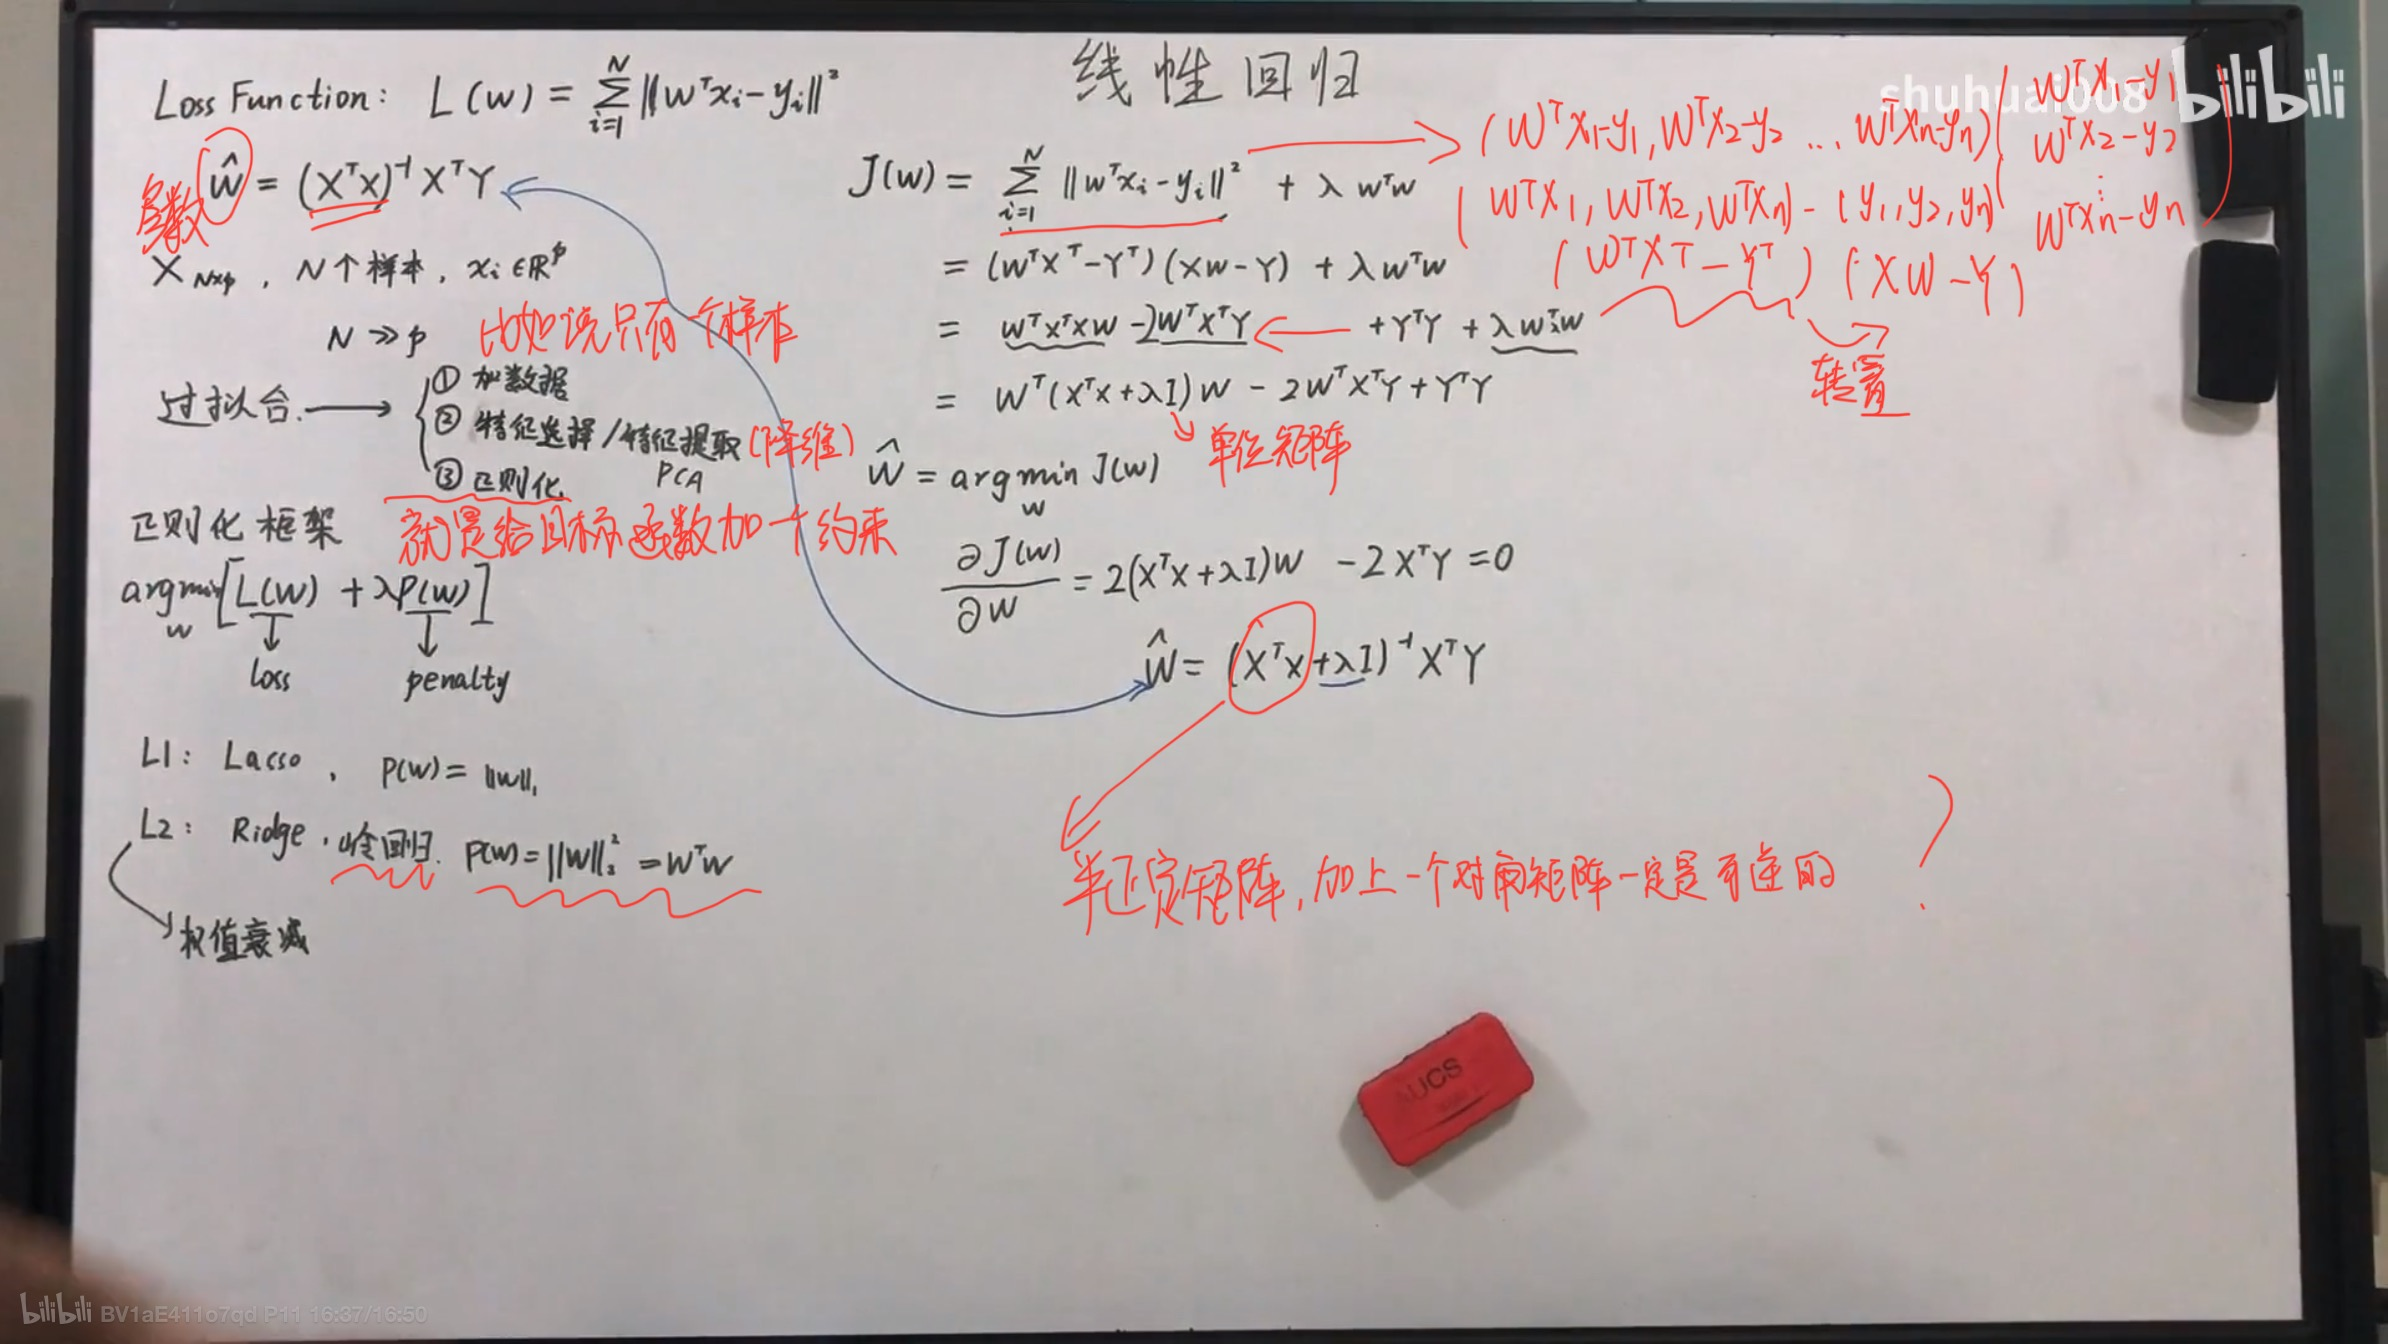 线性回归
shuhuai008 bilibili
Loss Function: L(w) = ∑_{i=1}^{N} ||wᵀxᵢ - yᵢ||²
参数 ŵ = (XᵀX)⁻¹XᵀY
X_{N×p}, N个样本, xᵢ∈ℝᵖ
N ≫ p
比如说只有一个样本
过拟合. → ① 加数据
② 特征选择/特征提取 (降维)
PCA
③ 正则化
就是给目标函数加一个约束
正则化 框架
argmin_w [L(w) + λP(w)]
loss penalty
L1: Lasso, P(w) = ||w||₁
L2: Ridge, 岭回归. P(w) = ||w||₂² = wᵀw
权值衰减
J(w) = ∑_{i=1}^{N} ||wᵀxᵢ - yᵢ||² + λwᵀw
= (wᵀXᵀ - Yᵀ)(Xw - Y) + λwᵀw
= wᵀXᵀXw - 2wᵀXᵀY + YᵀY + λwᵀw
= wᵀ(XᵀX + λI)w - 2wᵀXᵀY + YᵀY
单位矩阵
ŵ = argmin_w J(w)
∂J(w)/∂w = 2(XᵀX + λI)w - 2XᵀY = 0
ŵ = (XᵀX + λI)⁻¹XᵀY
半正定矩阵,加上一个对角矩阵一定是可逆的 ?
(WᵀX₁-y₁, WᵀX₂-y₂ ... WᵀXn-yn)
(WᵀX₁, WᵀX₂, WᵀXn) - (y₁, y₂, yn)
(WᵀXᵀ - Yᵀ) (XW - Y)
转置
WᵀX₁-y₁
WᵀX₂-y₂
⋮
WᵀXn-yn
AUCS
bilibili BV1aE411o7qd P11 16:37/16:50